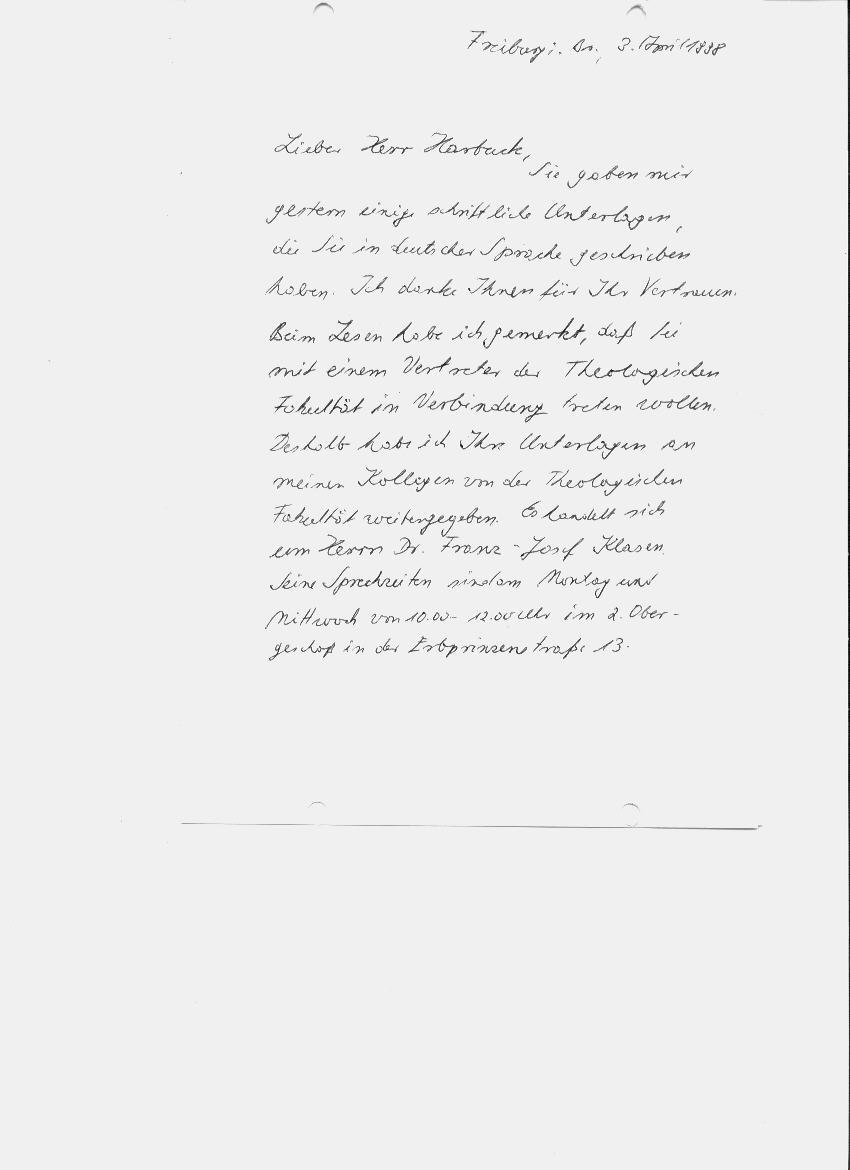 Freiburg i. Br., 3. April 1998
Lieber Herr Harback,
Sie gaben mir
gestern einige schriftliche Unterlagen,
die Sie in deutscher Sprache geschrieben
haben. Ich danke Ihnen für Ihr Vertrauen.
Beim Lesen habe ich gemerkt, daß Sie
mit einem Vertreter der Theologischen
Fakultät in Verbindung treten wollen.
Deshalb habe ich Ihre Unterlagen an
meinen Kollegen von der Theologischen
Fakultät weitergegeben. Es handelt sich
um Herrn Dr. Franz-Josef Klasen.
Seine Sprechzeiten sind am Montag und
Mittwoch von 10.00 - 12.00 Uhr im 2. Ober-
geschoß in der Erbprinzenstraße 13.